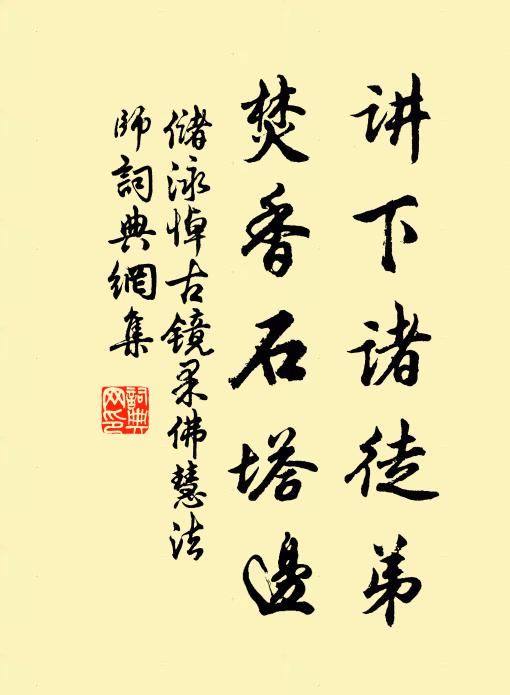 讲下诸徒弟
焚香石塔邊
储泳悼古镜柔佛慧法
师詞典網集
詞典
网印